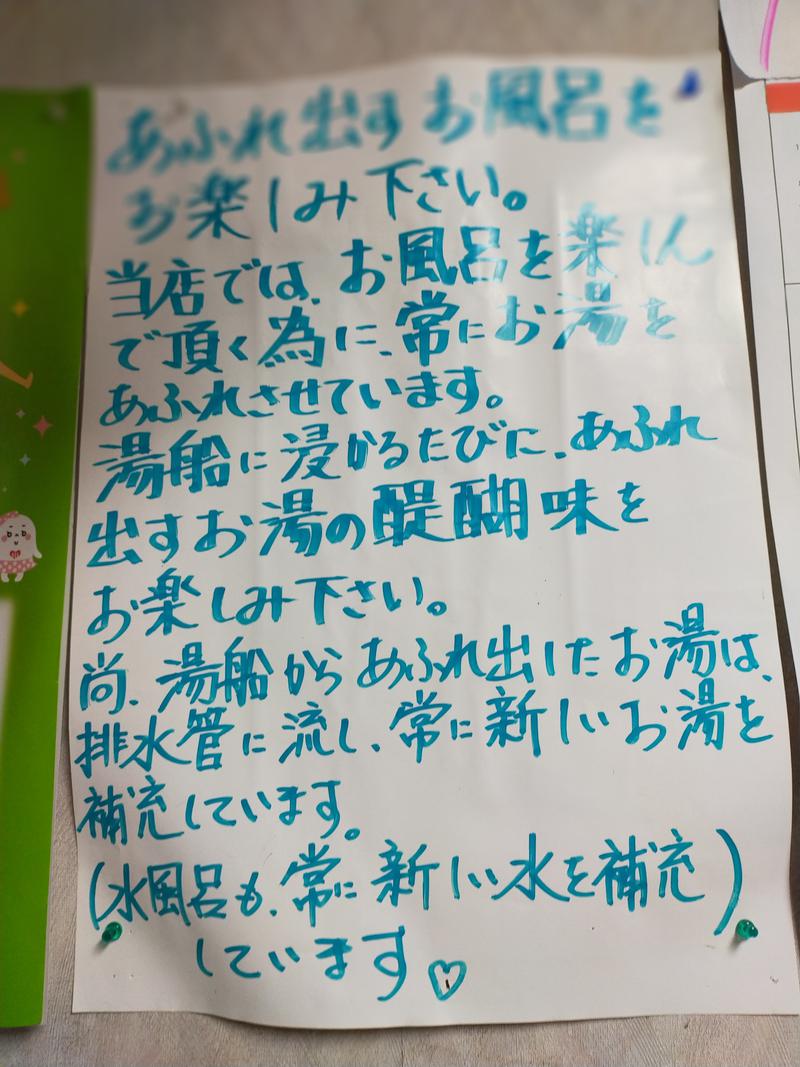 あふれ出すお風呂を
お楽しみ下さい。
当店では、お風呂を楽しん
で頂く為に、常にお湯を
あふれさせています。
湯船に浸かるたびに、あふれ
出すお湯の醍醐味を
お楽しみ下さい。
尚、湯船からあふれ出したお湯は、
排水管に流し、常に新しいお湯を
補充しています。
(水風呂も、常に新しい水を補充)
しています♡